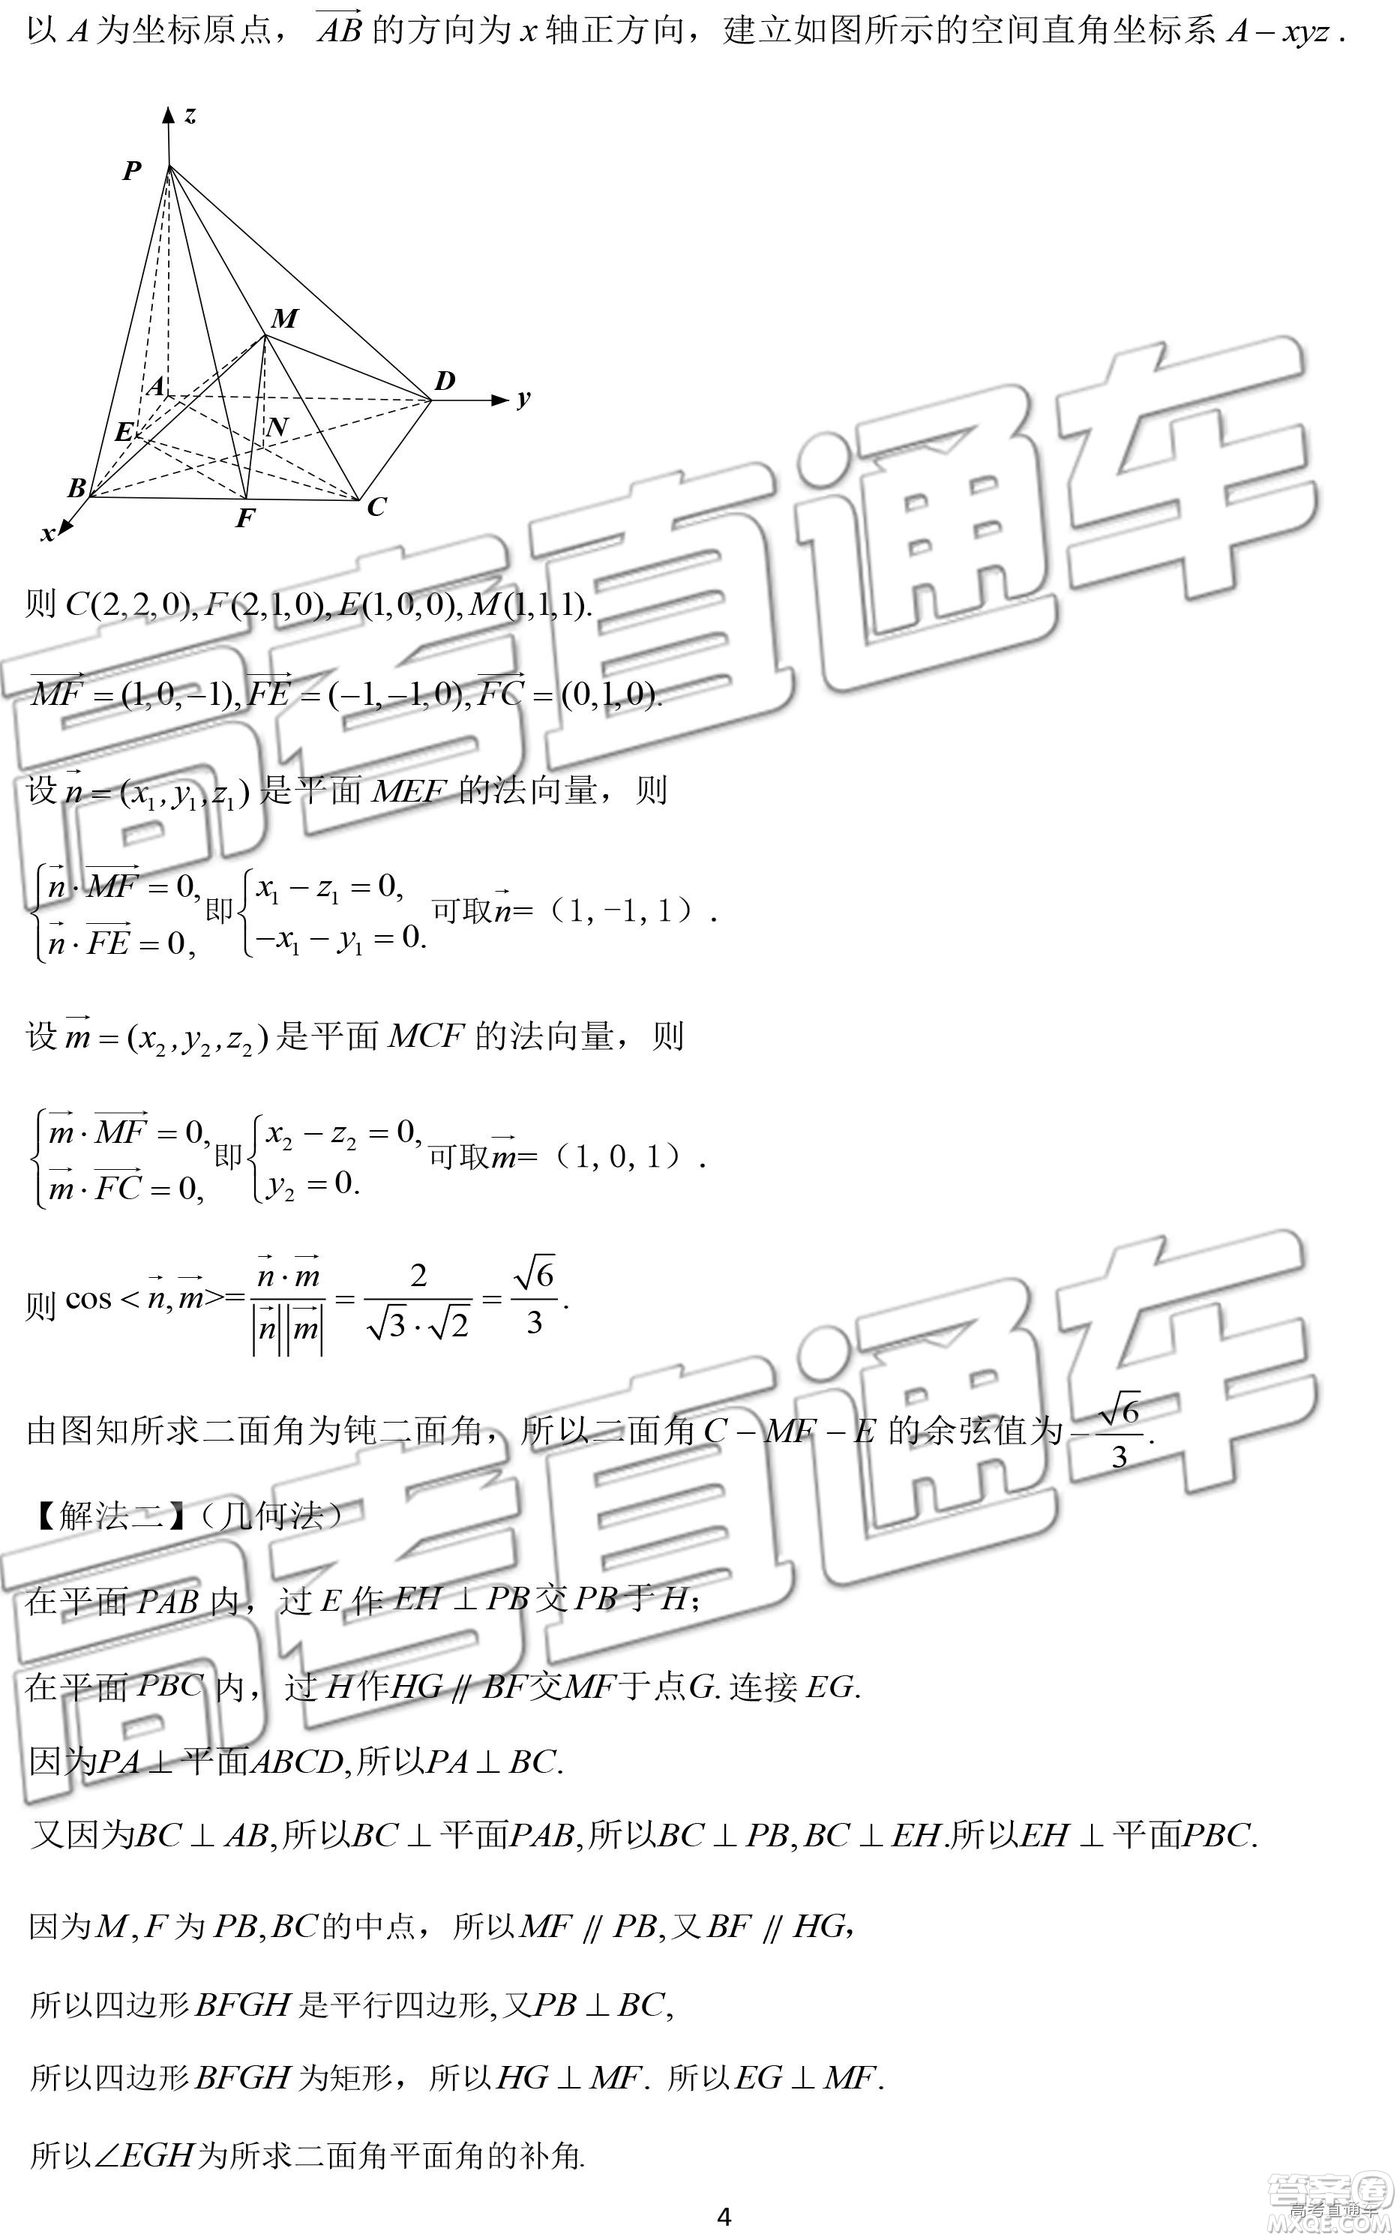 以 A 为坐标原点， $\overrightarrow{AB}$ 的方向为 x 轴正方向，建立如图所示的空间直角坐标系 A－xyz .
z
P
M
A
D
y
E
N
B
F
C
x
则 C(2,2,0), F(2,1,0), E(1,0,0), M(1,1,1).
$\overrightarrow{MF}=(1,0,-1),\overrightarrow{FE}=(-1,-1,0),\overrightarrow{FC}=(0,1,0).$
设 $\vec{n}=(x_1,y_1,z_1)$ 是平面 MEF 的法向量，则
$\begin{cases}\vec{n}\cdot\overrightarrow{MF}=0,\\ \vec{n}\cdot\overrightarrow{FE}=0,\end{cases}$ 即 $\begin{cases}x_1-z_1=0,\\ -x_1-y_1=0.\end{cases}$ 可取 $\vec{n}$=（1,-1,1）.
设 $\overrightarrow{m}=(x_2,y_2,z_2)$ 是平面 MCF 的法向量，则
$\begin{cases}\overrightarrow{m}\cdot\overrightarrow{MF}=0,\\ \overrightarrow{m}\cdot\overrightarrow{FC}=0,\end{cases}$ 即 $\begin{cases}x_2-z_2=0,\\ y_2=0.\end{cases}$ 可取 $\overrightarrow{m}$=（1,0,1）.
则 $\cos<\vec{n},\overrightarrow{m}>=\frac{\vec{n}\cdot\overrightarrow{m}}{|\vec{n}||\overrightarrow{m}|}=\frac{2}{\sqrt{3}\cdot\sqrt{2}}=\frac{\sqrt{6}}{3}.$
由图知所求二面角为钝二面角，所以二面角 C－MF－E 的余弦值为 $-\frac{\sqrt{6}}{3}$.
【解法二】（几何法）
在平面 PAB 内，过 E 作 EH ⊥ PB 交 PB 于 H；
在平面 PBC 内，过 H 作 HG ∥ BF 交 MF 于点 G. 连接 EG.
因为PA ⊥ 平面ABCD, 所以PA ⊥ BC.
又因为BC ⊥ AB, 所以BC ⊥ 平面PAB, 所以BC ⊥ PB, BC ⊥ EH. 所以EH ⊥ 平面PBC.
因为 M, F 为 PB, BC 的中点，所以 MF ∥ PB, 又 BF ∥ HG，
所以四边形 BFGH 是平行四边形, 又PB ⊥ BC,
所以四边形 BFGH 为矩形，所以 HG ⊥ MF. 所以 EG ⊥ MF.
所以∠EGH 为所求二面角平面角的补角.
4
高考直通车
高考直通车
答案圈
高考直通车
MXQE.COM